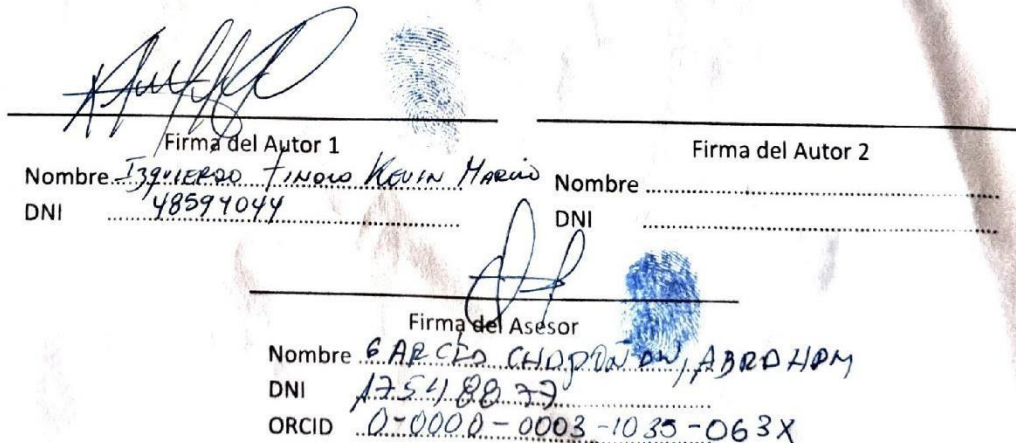 Firma del Autor 1
Nombre Izquierdo Tinoco Kevin Marcio
DNI 48594044
Firma del Autor 2
Nombre
DNI
Firma del Asesor
Nombre GARCÍA CHOPOÑAN, ABRAHAM
DNI 17548877
ORCID 0-0000-0003-1035-063X